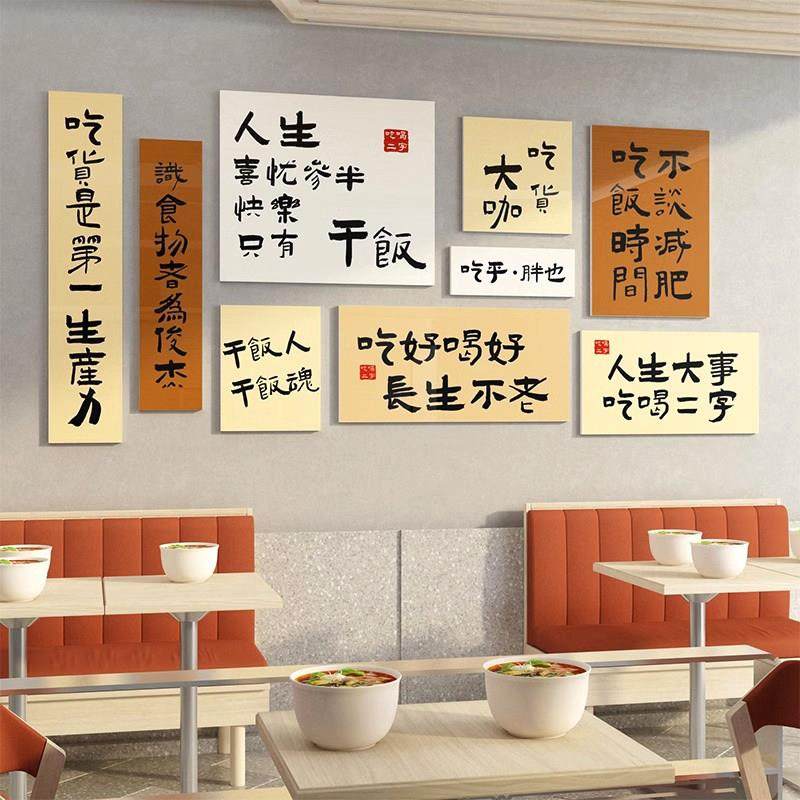 吃貨是第一生産力
識食物者為俊杰
人生
喜忧參半
快樂
只有
干飯
吃喝
二字
吃貨
大咖
吃乎·胖也
不談減肥
吃飯時間
干飯人
干飯魂
吃好喝好
長生不老
吃喝
二字
人生大事
吃喝二字
吃喝
二字